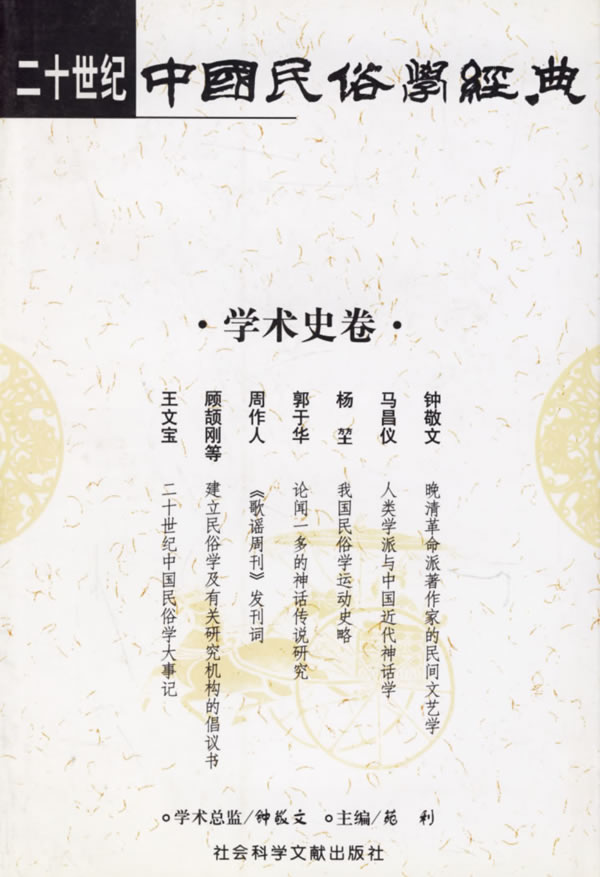 二十世纪
中國民俗學經典
·学术史卷·
钟敬文 晚清革命派著作家的民间文艺学
马昌仪 人类学派与中国近代神话学
杨堃 我国民俗学运动史略
郭于华 论闻一多的神话传说研究
周作人 《歌谣周刊》发刊词
顾颉刚等 建立民俗学及有关研究机构的倡议书
王文宝 二十世纪中国民俗学大事记
学术总监/钟敬文 主编/苑利
社会科学文献出版社